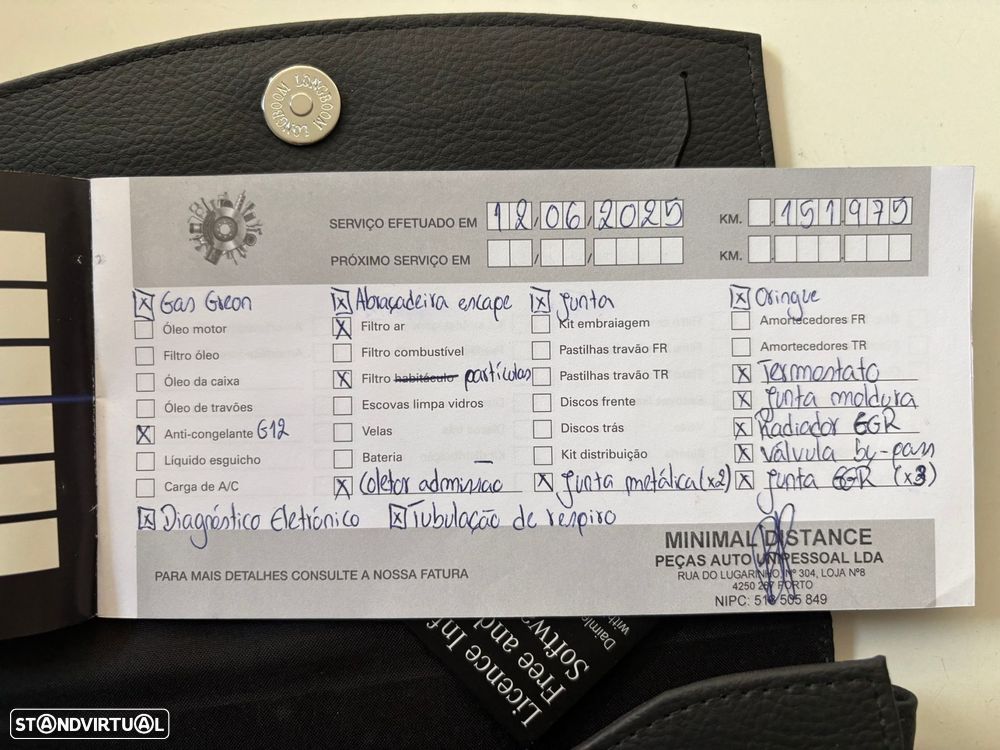 LONGBOOM LONGBOOM
SERVIÇO EFETUADO EM 12/06/2025 KM. 151.975
PRÓXIMO SERVIÇO EM / / KM.
Gas Greon
Óleo motor
Filtro óleo
Óleo da caixa
Óleo de travões
Anti-congelante G12
Líquido esguicho
Carga de A/C
Abraçadeira escape
Filtro ar
Filtro combustível
Filtro habitáculo partículas
Escovas limpa vidros
Velas
Bateria
Coletor admissão
Junta
Kit embraiagem
Pastilhas travão FR
Pastilhas travão TR
Discos frente
Discos trás
Kit distribuição
Junta metálica (x2)
Oringue
Amortecedores FR
Amortecedores TR
Termostato
Junta moldura
Radiador EGR
Válvula by-pass
Junta EGR (x3)
Diagnóstico Eletrónico
Tubulação de respiro
PARA MAIS DETALHES CONSULTE A NOSSA FATURA
MINIMAL DISTANCE
PEÇAS AUTO UNIPESSOAL LDA
RUA DO LUGARINHO, Nº 304, LOJA Nº8
4250 PORTO
NIPC: 505 849
Licence Inf
Free and
Softwa
Daimle
with
STANDVIRTUAL